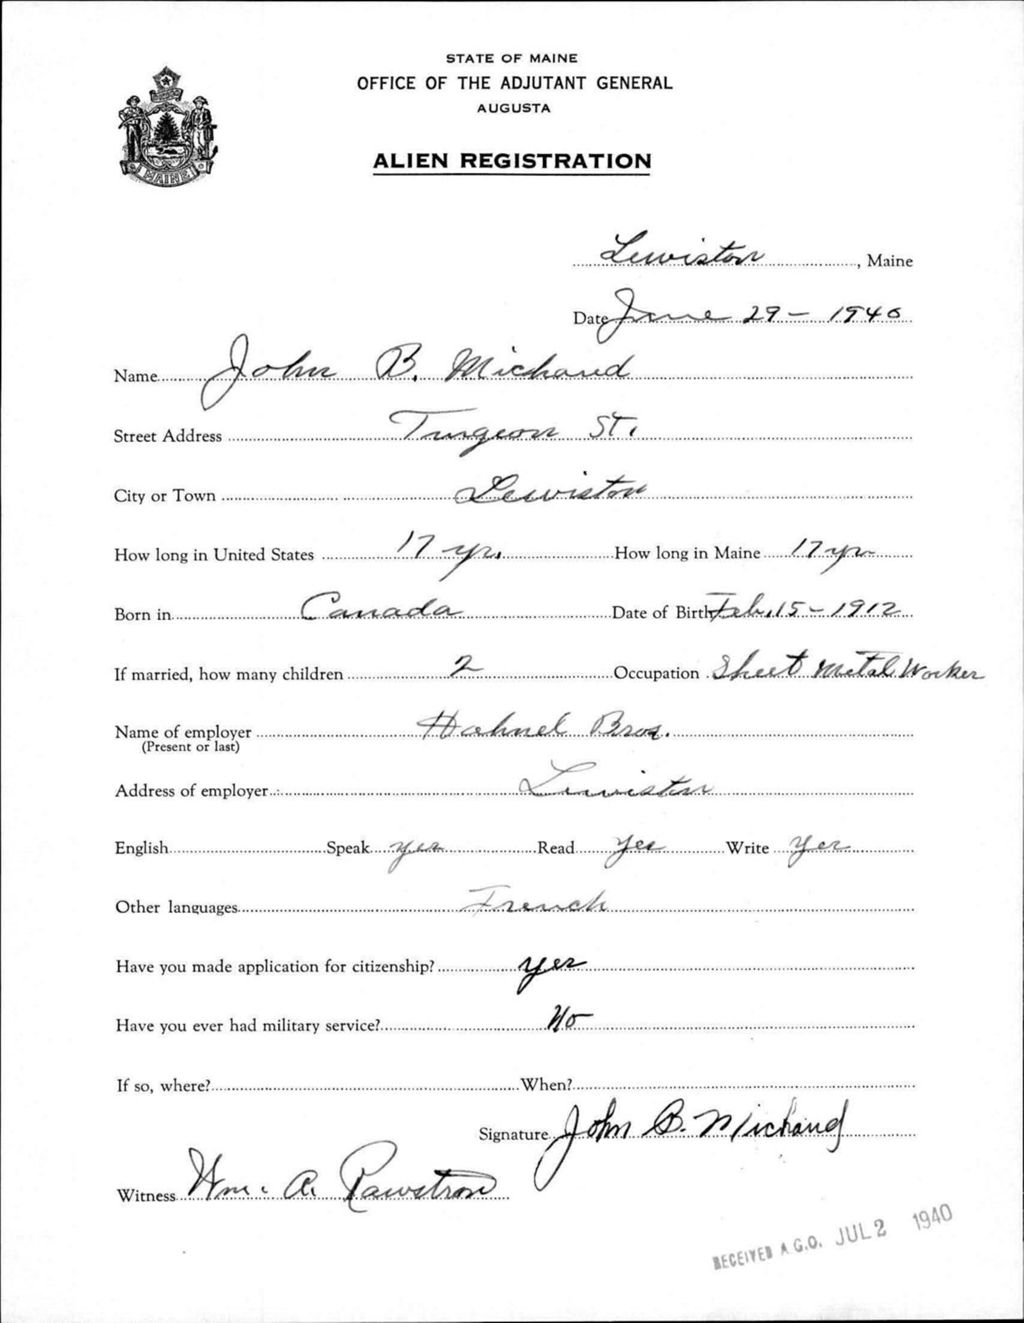 STATE OF MAINE
OFFICE OF THE ADJUTANT GENERAL
AUGUSTA
ALIEN REGISTRATION
MAINE
Lewiston, Maine
Date June 29 - 1940
Name John B. Michaud
Street Address Turgeon St.
City or Town Lewiston
How long in United States 17 yr. How long in Maine 17 yr
Born in Canada Date of Birth Feb. 15 - 1912
If married, how many children 2 Occupation Sheet Metal Worker
Name of employer Hahnel Bros.
(Present or last)
Address of employer Lewiston
English Speak yes Read Yes Write Yes
Other languages French
Have you made application for citizenship? yes
Have you ever had military service? No
If so, where? When?
Signature John B. Michaud
Witness Wm. A. Rawstron
RECEIVED A.G.O. JUL 2 1940